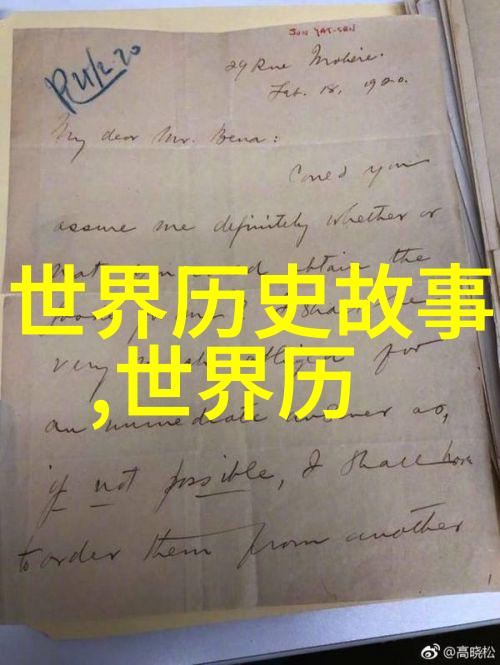 SUN YAT-SEN
R 21/2.20
29 Rue Molière.
Feb. 18, 1920.
My dear Mr. Bena:
Could you
assure me definitely whether or
not obtain the
世界历史故事
very obliged for
,世界历
an immediate answer as,
if not possible, I shall have
to order them from another
@高晓松